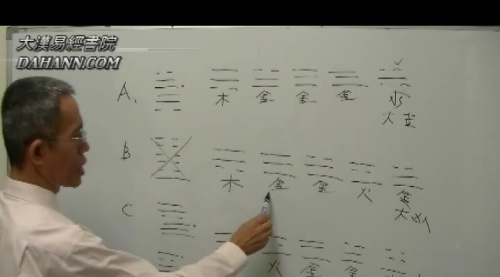 大漢易經書院
DAHANN.COM
A. 木 金 金 金 水
火
B 木 金 金 火 金
大凶
C
火 金 金